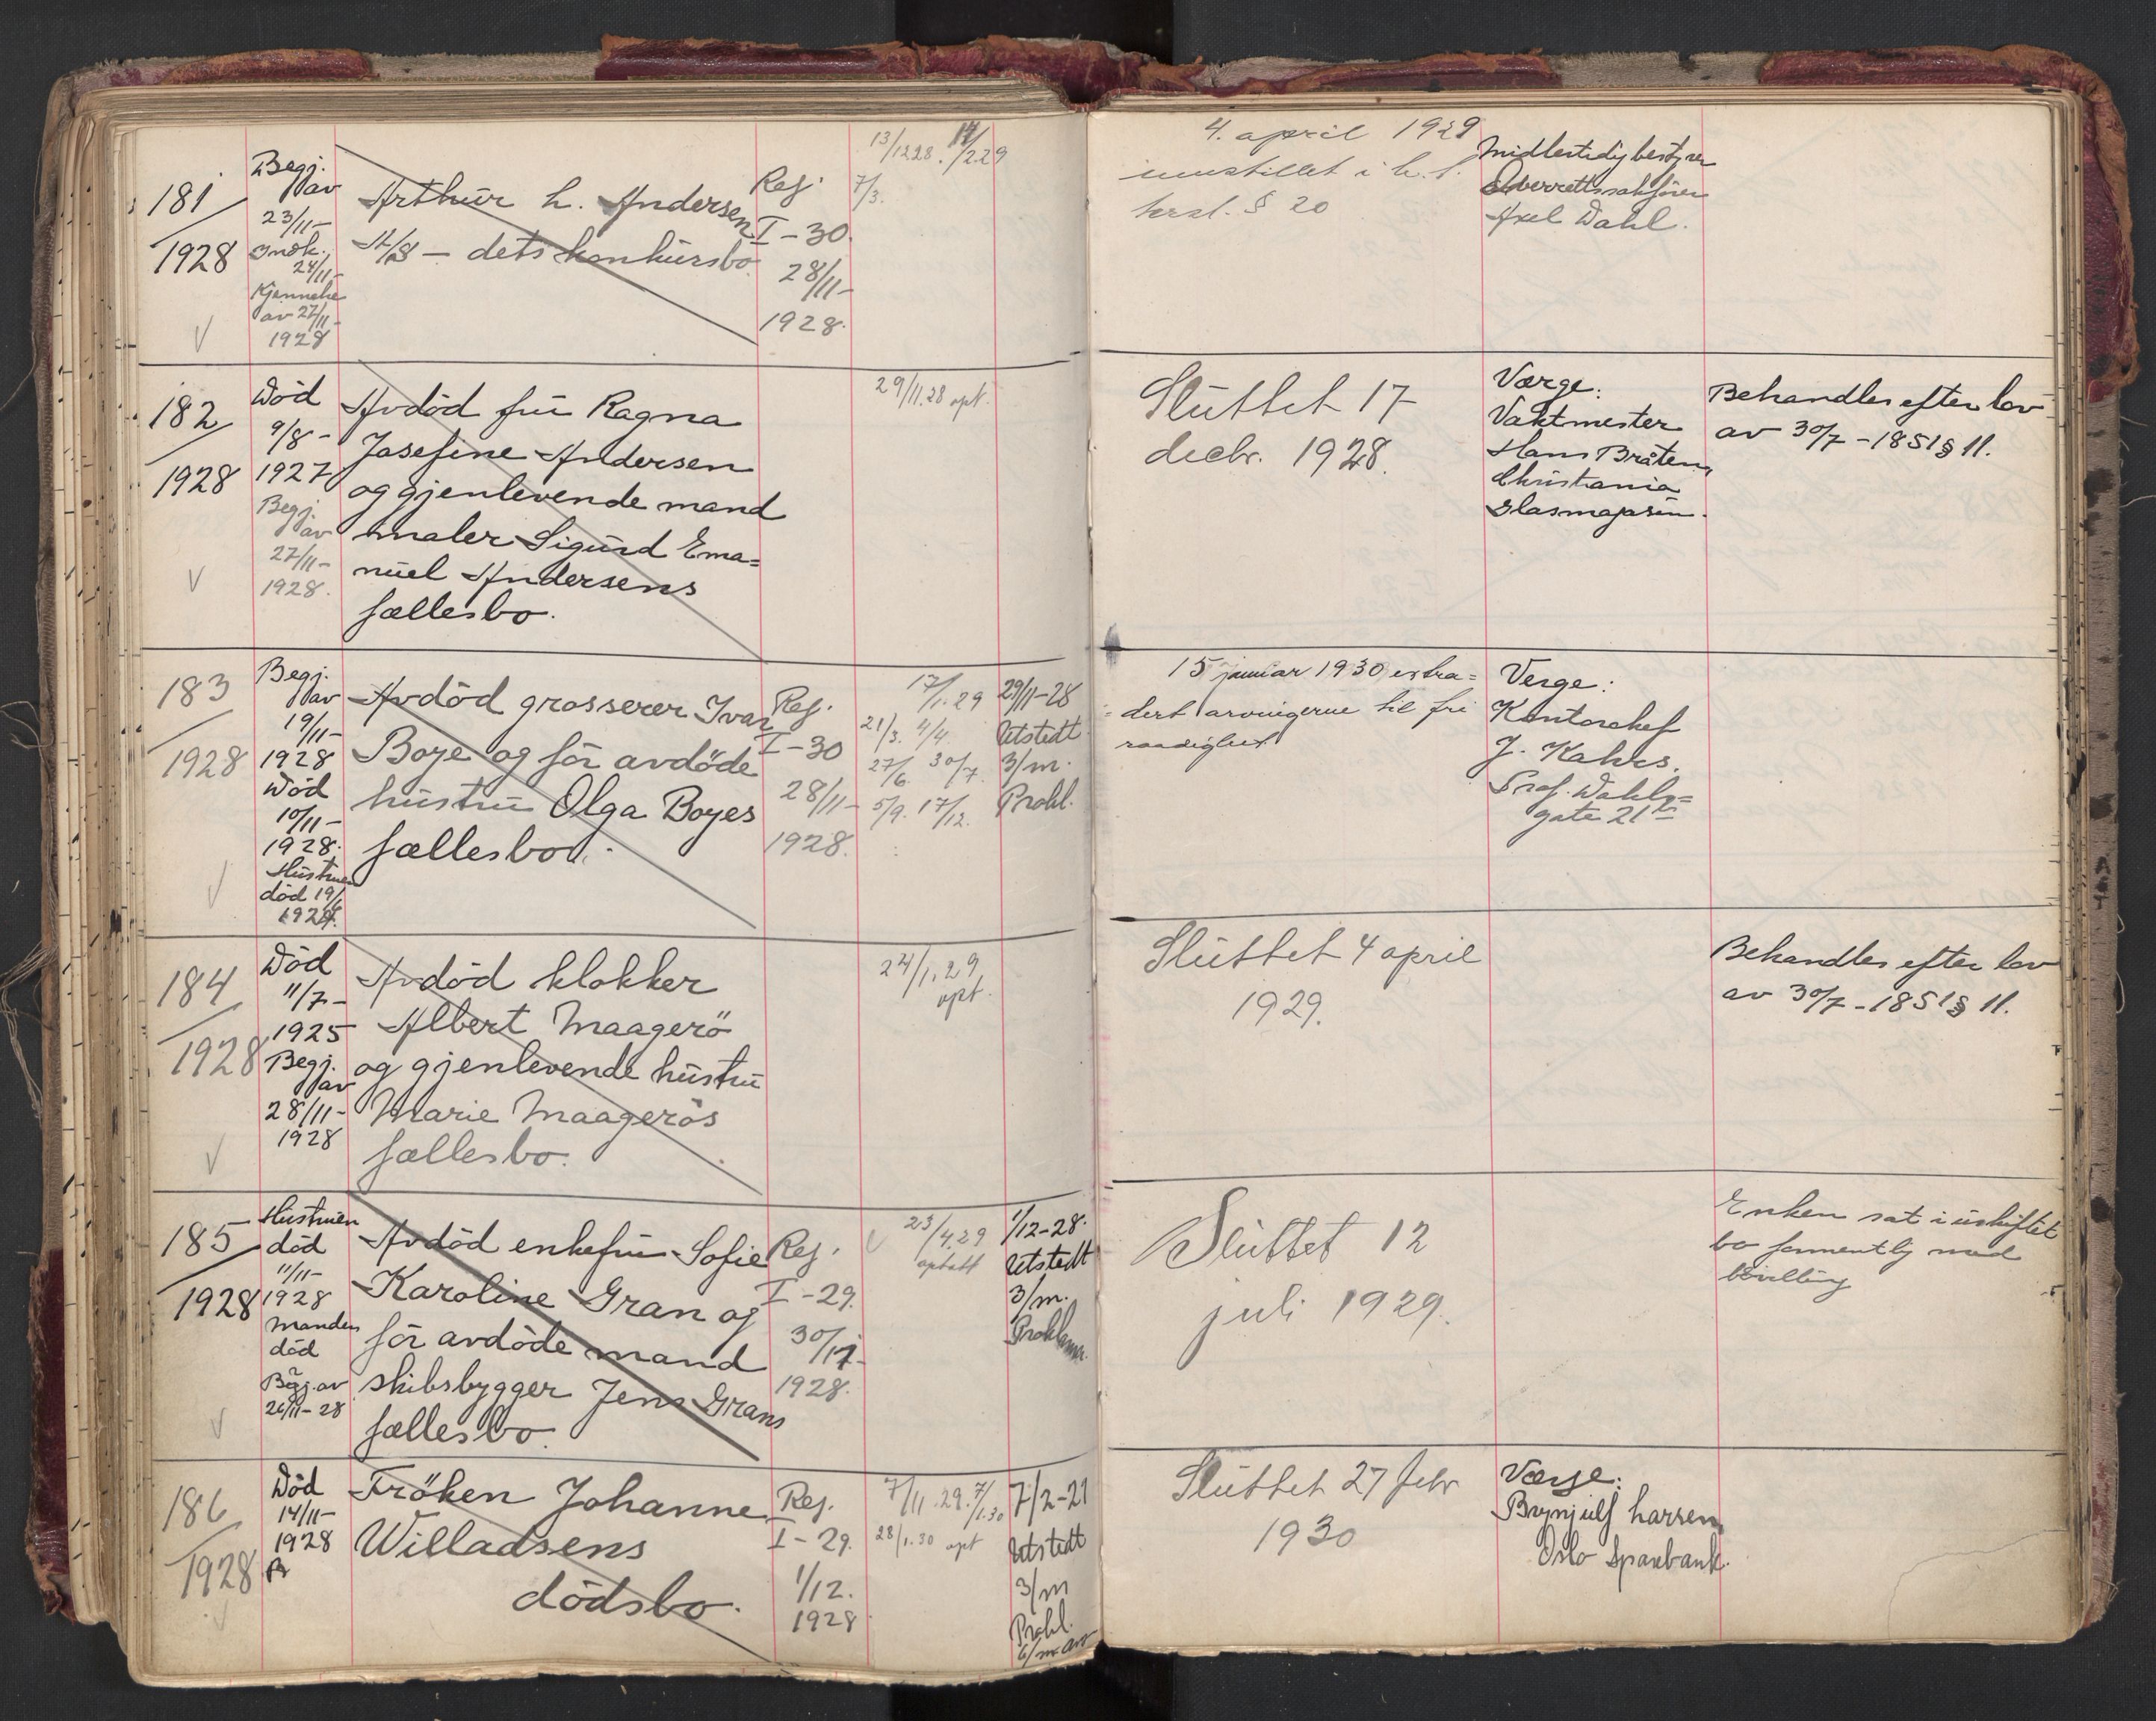 181
1928
Begj.
av
23/11-
Indk.
24/11-
Kjennelse
av 27/11-
1928
Arthur L. Andersen
A/S - dets konkursbo
Reg.
I-30.
28/11-
1928.
13/12 28. 14/2 29
7/3.
4. april 1929
innstillet i h. t.
krsl. § 20
Midlertidig bestyrer
Overrettssakfører
Axel Dahl.
182
1928
Död
9/8-
1927
Begj.
av
27/11-
1928.
Avdöd fru Ragna
Josefine Andersen
og gjenlevende mand
maler Sigurd Ema=
nuel Andersens
fællesbo.
29/11.28 opt.
Sluttet 17
decbr. 1928.
Værge:
Vaktmester
Hans Bråten,
Christiania
Glasmagasin.
Behandles efter lov
av 30/7-1851 § 11.
183
1928
Begj.
av
19/11-
1928
Död
10/11-
1928.
Hustruen
död 19/6
1924.
Avdöd grosserer Ivar
Boye og för avdöde
hustru Olga Boyes
fællesbo.
Reg.
I-30
28/11-
1928.
17/1.29
21/3. 4/4.
27/6. 30/7.
5/9. 17/12.
29/11-28
Utstedt
3/m.
Prokl.
15 januar 1930 extra=
dert arvingerne til fri
raadighet.
Verge:
Kontorchef
J. Kahrs.
Prof. Dahls=
gate 21
184
1928
Död
11/7-
1925
Begj.
av
28/11-
1928
Avdöd klokker
Albert Maagerö
og gjenlevende hustru
Marie Maagerös
fællesbo.
24/1.29
opt.
Sluttet 4 april
1929.
Behandles efter lov
av 30/7-1851 § 11.
185
1928
Hustruen
död
11/11-
1928
Manden
död
Begj. av
26/11-28
Avdöd enkefru Sofie
Karoline Gran og
för avdöde mand
skibsbygger Jens Grans
fællesbo.
Reg.
I-29.
30/11-
1928.
23/4.29
optatt
1/12-28.
Utstedt
3/m.
Proklama.
Sluttet 12
juli 1929.
Enken sat i uskiftet
bo formentlig med
bevilling
186
1928
Död
14/11-
1928
Fröken Johanne
Willadsens
dödsbo.
Reg.
I-29.
1/12.
1928
7/11.29. 7/1.30
28/1.30 opt
7/2-29
Utstedt
3/m
Prokl.
6/m arv
Sluttet 27 febr
1930
Værge:
Brynjulf Larsen,
Oslo Sparebank.